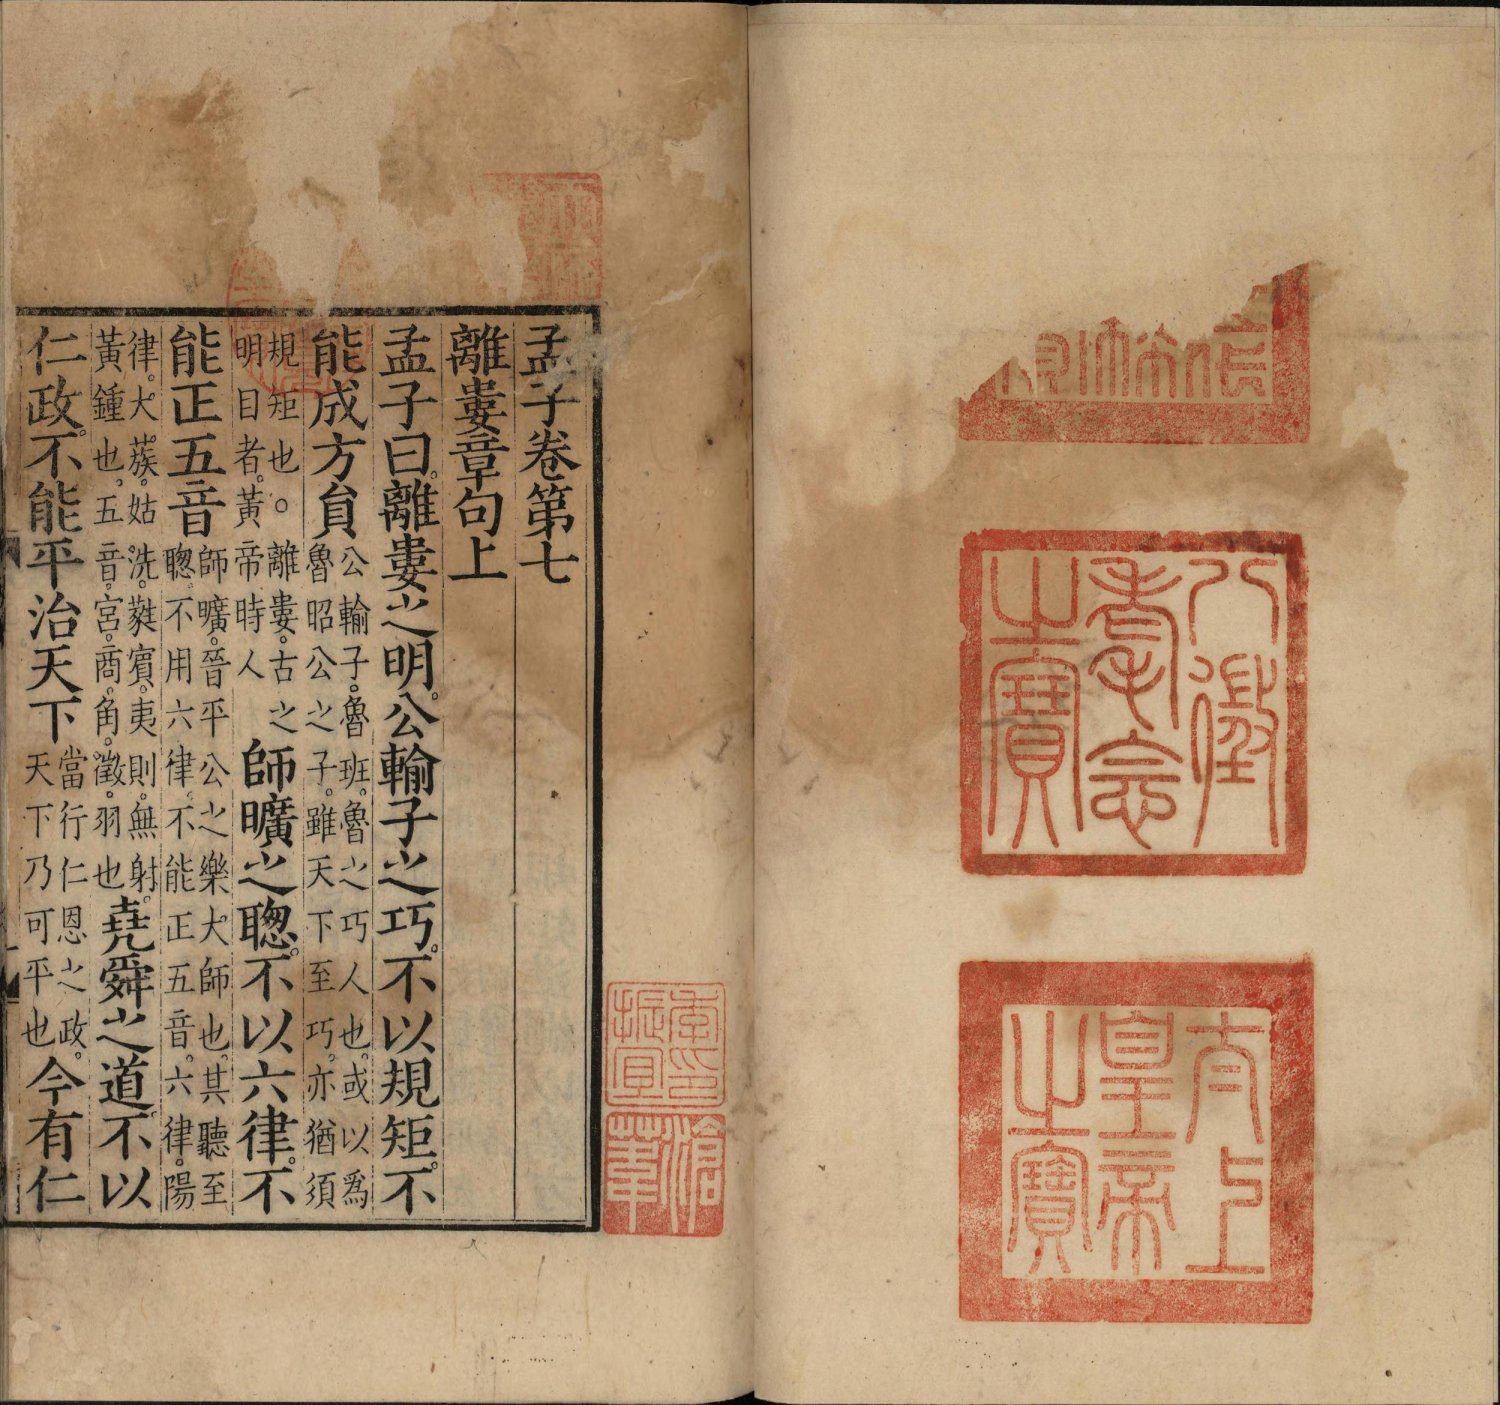 八徵
耄念
之寶
太上
皇帝
之寶
孟子卷第七
離婁章句上
孟子曰。離婁之明。公輸子之巧。不以規矩。不
能成方員
公輸子。魯班。魯之巧人也。或以爲
魯昭公之子。雖天下至巧。亦猶須
規矩也。○離婁。古之
明目者。黃帝時人
師曠之聰。不以六律。不
能正五音
師曠。晉平公之樂大師也。其聽至
聰。不用六律。不能正五音。六律。陽
律。大蔟。姑洗。蕤賓。夷則。無射。
黃鍾也。五音。宮。商。角。徵。羽也
堯舜之道。不以
仁政。不能平治天下
當行仁恩之政。
天下乃可平也
今有仁
季印
振宜
滄葦